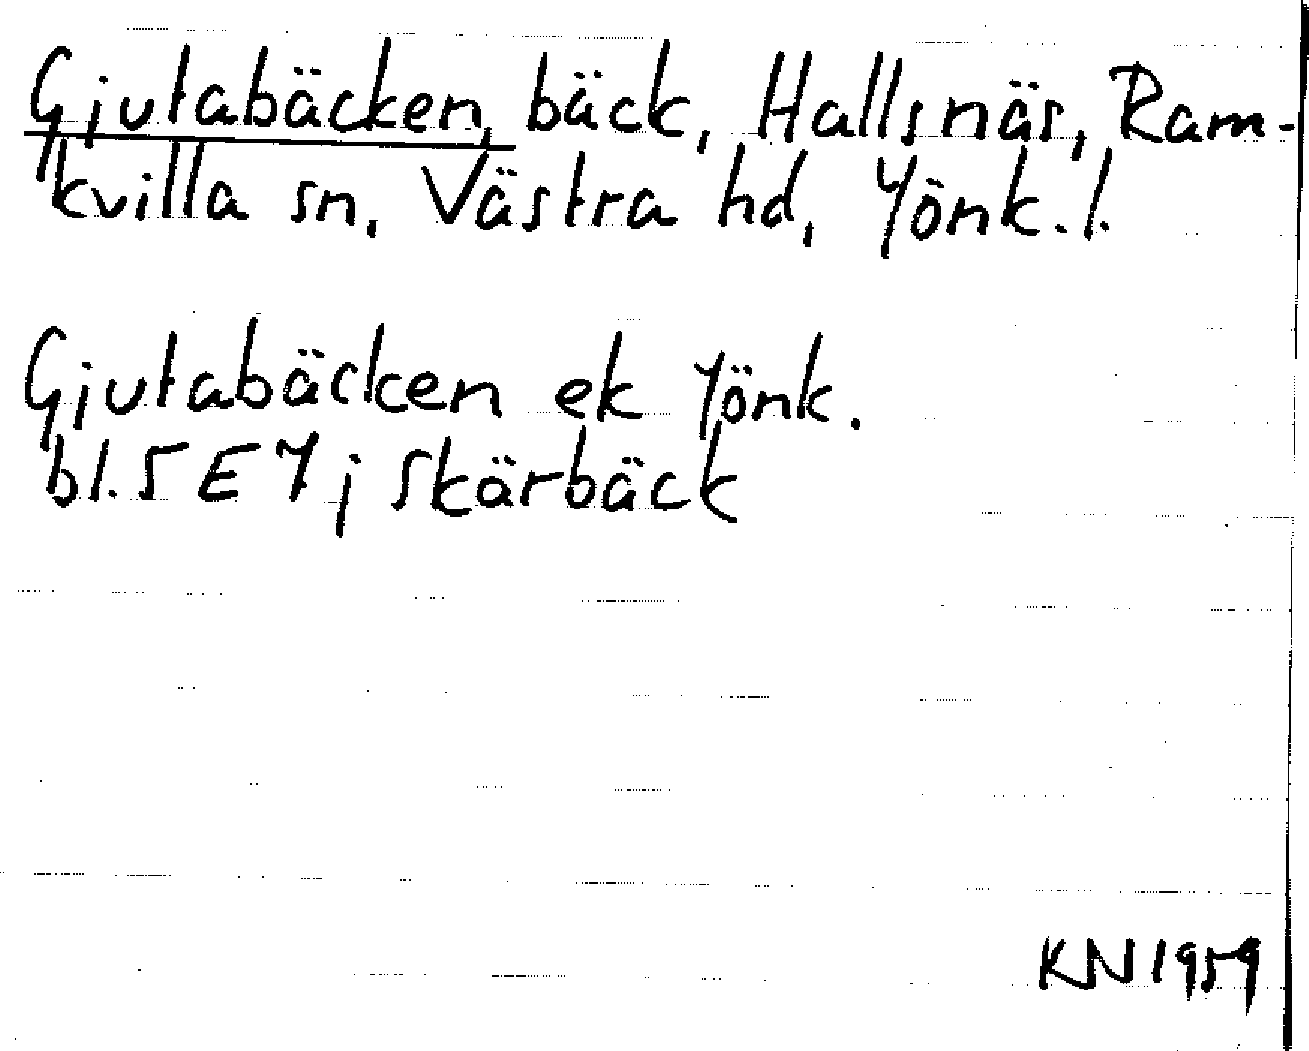 Gjutabäcken, bäck, Hallsnäs, Ram-
kvilla sn, Västra hd, Jönk. l.
Gjutabäcken ek Jönk.
bl. 5 E 7 j Skärbäck
KN 1959